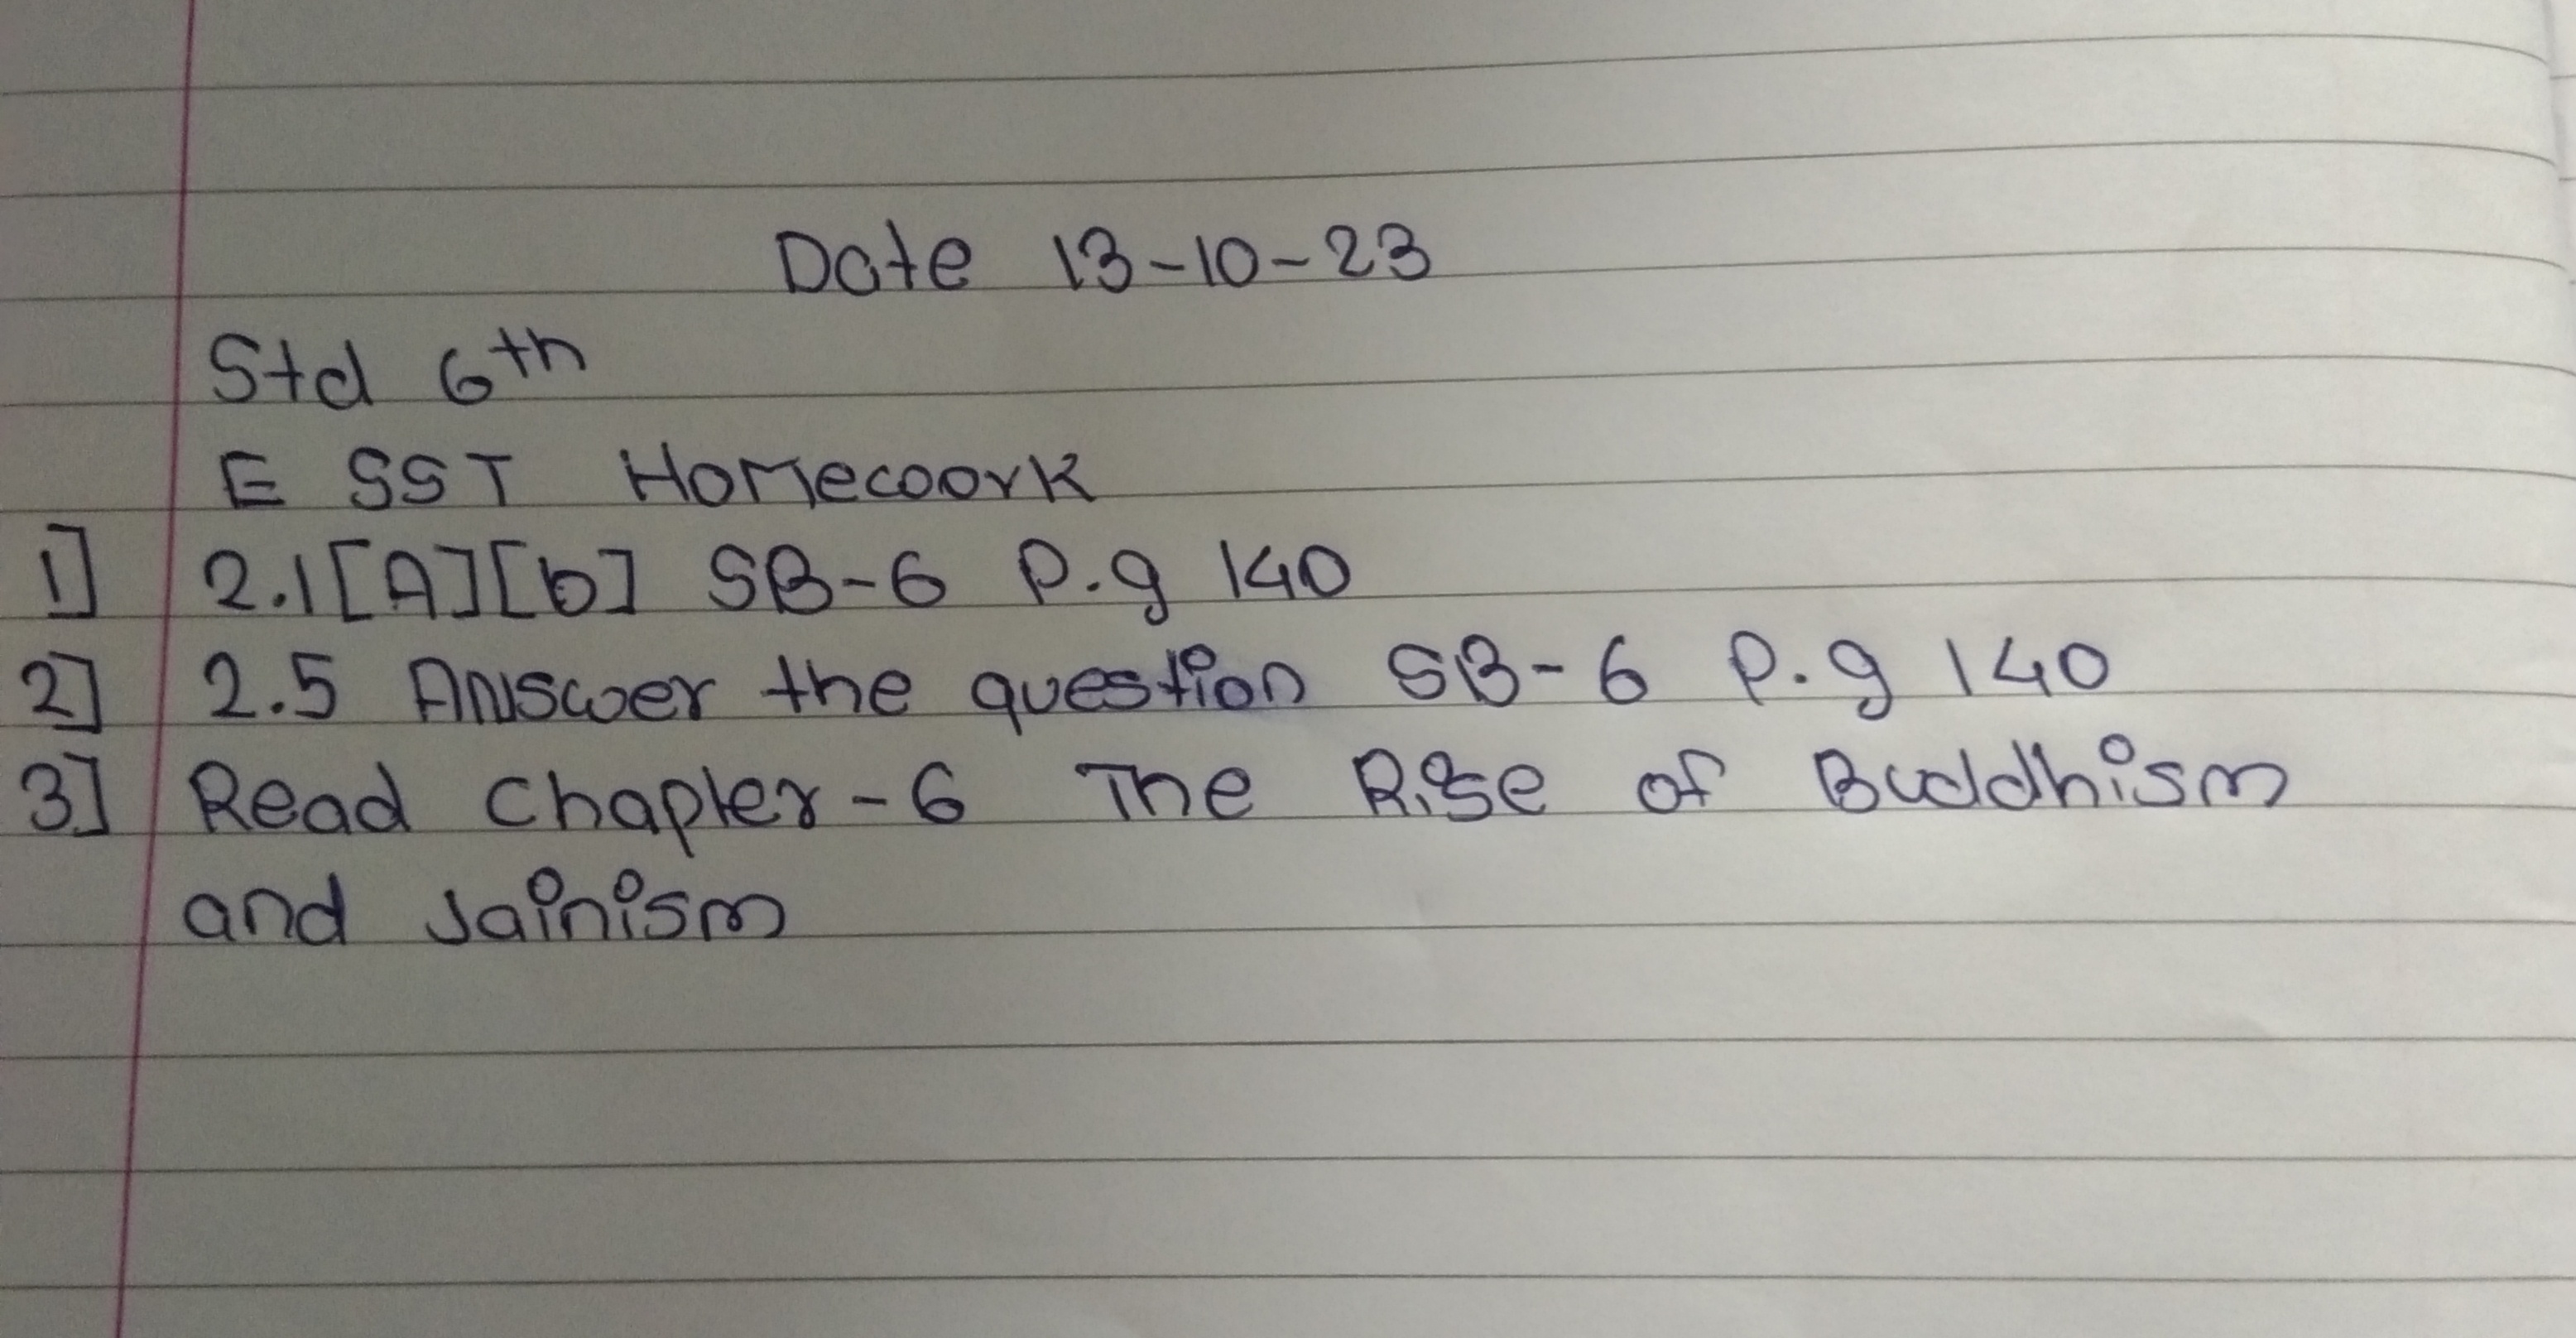 Date 13-10-23
Std 6th
E SST Homework
1] 2.1[A][b] SB-6 P.g 140
2] 2.5 Answer the question SB-6 P.g 140
3] Read Chapter-6 The Rise of Buddhism
and Jainism